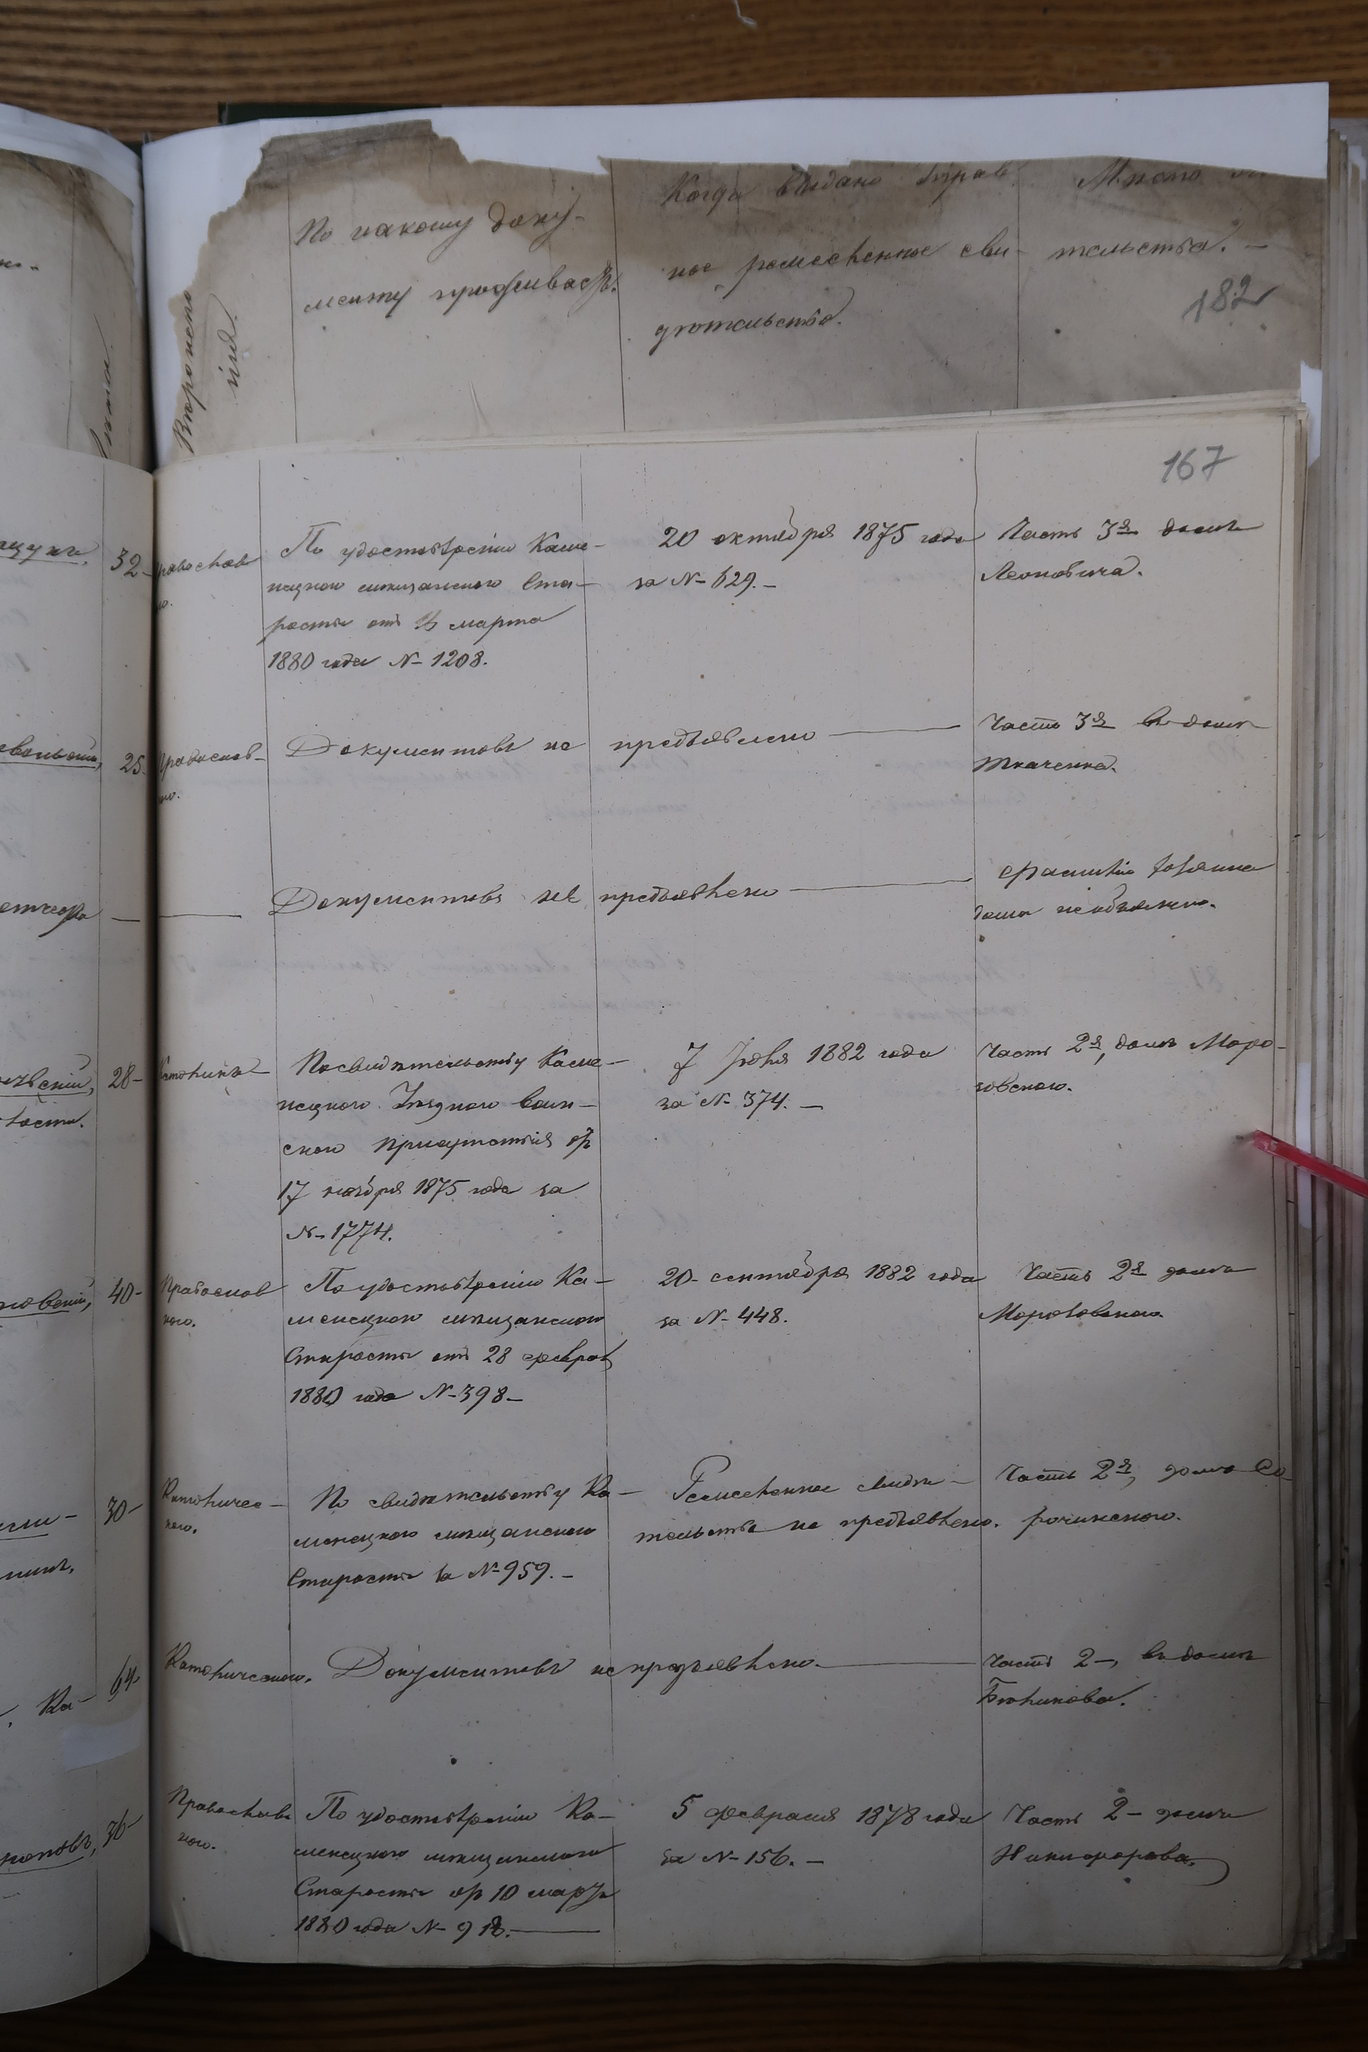 Вѣроиспо
По какому доку-
менту проживаетъ.
Когда выдано управ
ное ремесленное сви-
дѣтельство.
Мѣсто
тельства. —
182
167
32-
По удостовѣренію Каме-
нецкого мѣщанского Ста-
росты отъ 16 марта
1880 года № 1208.
20 октября 1875 года
за № 629. -
Часть 3я домъ
Леоновича.
25.
Православ-
Документовъ не предъявлено
Часть 3я въ домѣ
Ткаченка.
Документовъ не предъявлено
Фамилія хозяина
дома необъяснено.
28-
Посвидѣтельству Каме-
нецкого Уѣзднаго воин-
скаго присутствія отъ
17 ноября 1875 года за
№ 1774.
7 Іюня 1882 года
за № 374. -
Часть 2я, домъ Моро-
зовского.
40-
Православ
ного.
По удостовѣренію Ка-
менецкого мѣщанского
Старосты отъ 28 февраля
1880 года № 398-
20 сентября 1882 года
за № 448.
Часть 2я домъ
Морозовского
30-
Католичес-
кого.
По свидѣтельству Ка-
менецкого мѣщанского
Старосты за № 959. -
Ремесленное свидѣ-
тельство не предъявлено.
Часть 2я, домъ Со-
рочинского.
Ка-
64
Католического.
Документовъ непредъявлено.
Часть 2-, въ домѣ
36-
Православ
ного.
По удостовѣренію Ка-
менецкого мѣщанского
Старосты отъ 10 марта
1880 года № 918.
5 февраля 1878 года
за № 156. -
Часть 2- домъ
Никифорова.